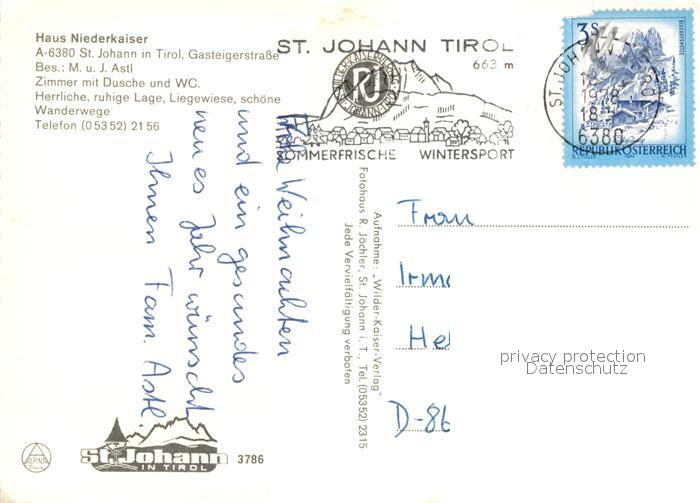 Haus Niederkaiser
A-6380 St. Johann in Tirol, Gasteigerstraße
Bes.: M. u. J. Astl
Zimmer mit Dusche und WC.
Herrliche, ruhige Lage, Liegewiese, schöne
Wanderwege
Telefon (05352) 2156
ST. JOHANN TIROL
663 m
SOMMERFRISCHE WINTERSPORT
ST. JOHANN
1978
18
6380
3 S
REPUBLIK ÖSTERREICH
Frohe Weihnachten
und ein gesundes
neues Jahr wünscht
Ihnen Fam. Astl
Aufnahme: „Wilder-Kaiser-Verlag"
Fotohaus R. Jöchler, St. Johann i. T., Tel. (05352) 2315
Jede Vervielfältigung verboten
Frau
Irm
He
D-86
privacy protection
Datenschutz
ALPINA
St. Johann
IN TIROL
3786